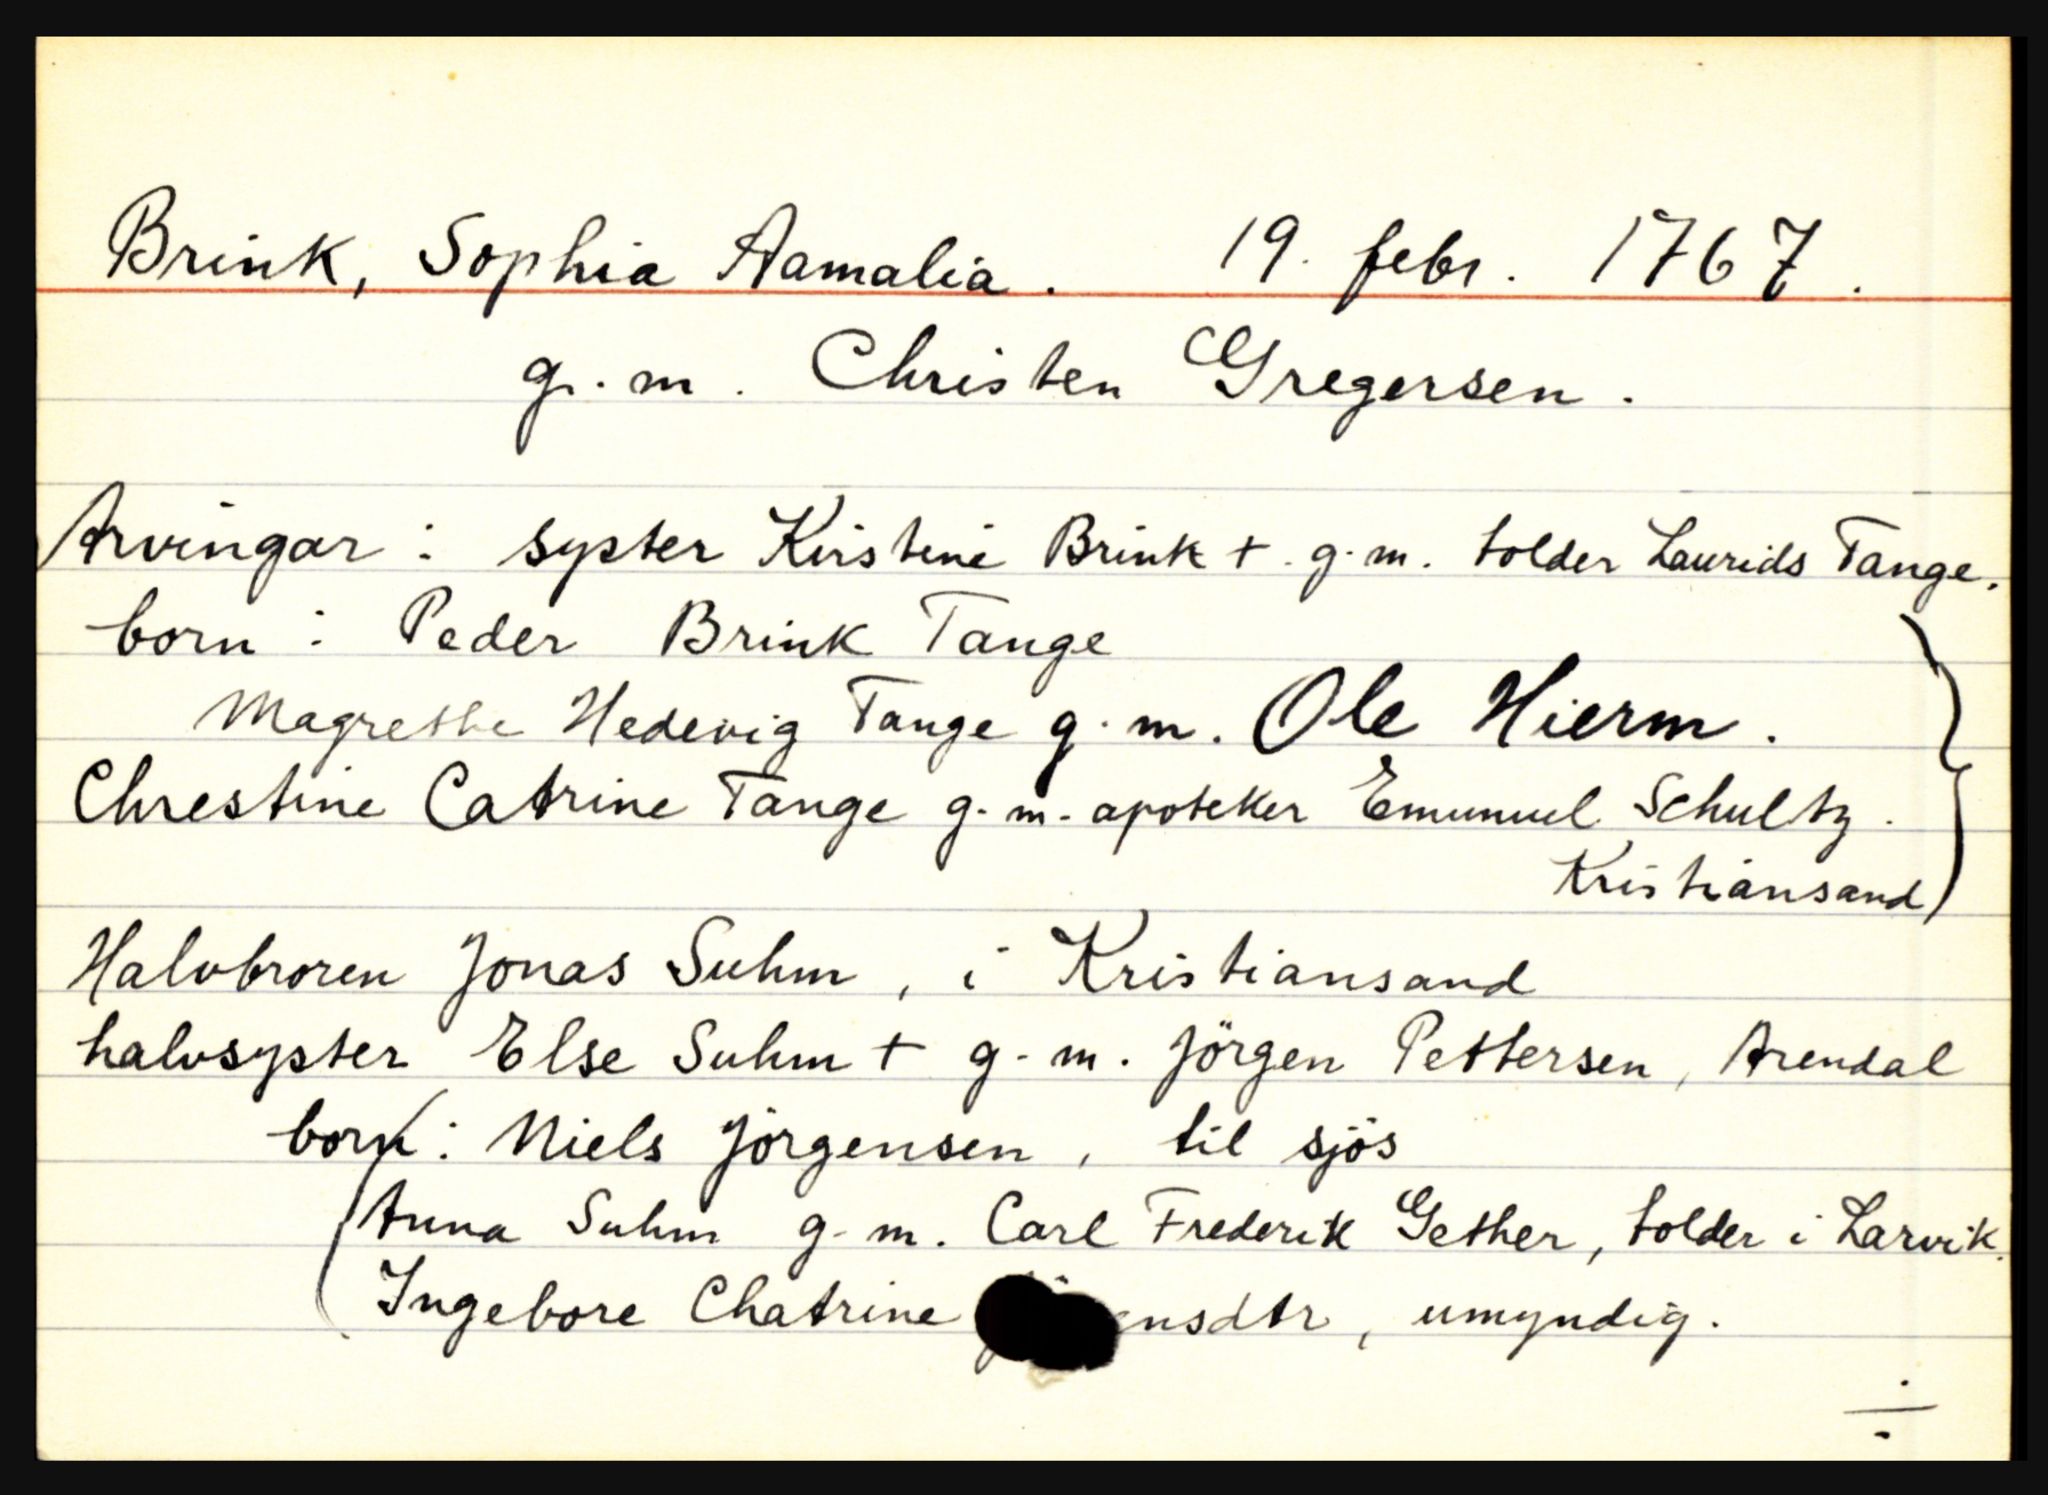 Brink, Sophia Aamalia. 19. febr. 1767.
g. m. Christen Gregersen.
Arvingar: syster Kirstine Brink + g. m. tolder Laurids Tange.
born: Peder Brink Tange
Magrethe Hedevig Tange g. m. Ole Hierm.
Chrestine Catrine Tange g. m. apoteker Emunuel Schultz.
Kristiansand
Halvbroren Jonas Suhm, i Kristiansand
halvsyster Else Suhm + g. m. Jörgen Pettersen, Arendal
born: Niels Jörgensen, til sjös
Anna Suhm g. m. Carl Frederik Gether, tolder i Larvik.
Ingebore Chatrine ensdtr, umyndig.
÷